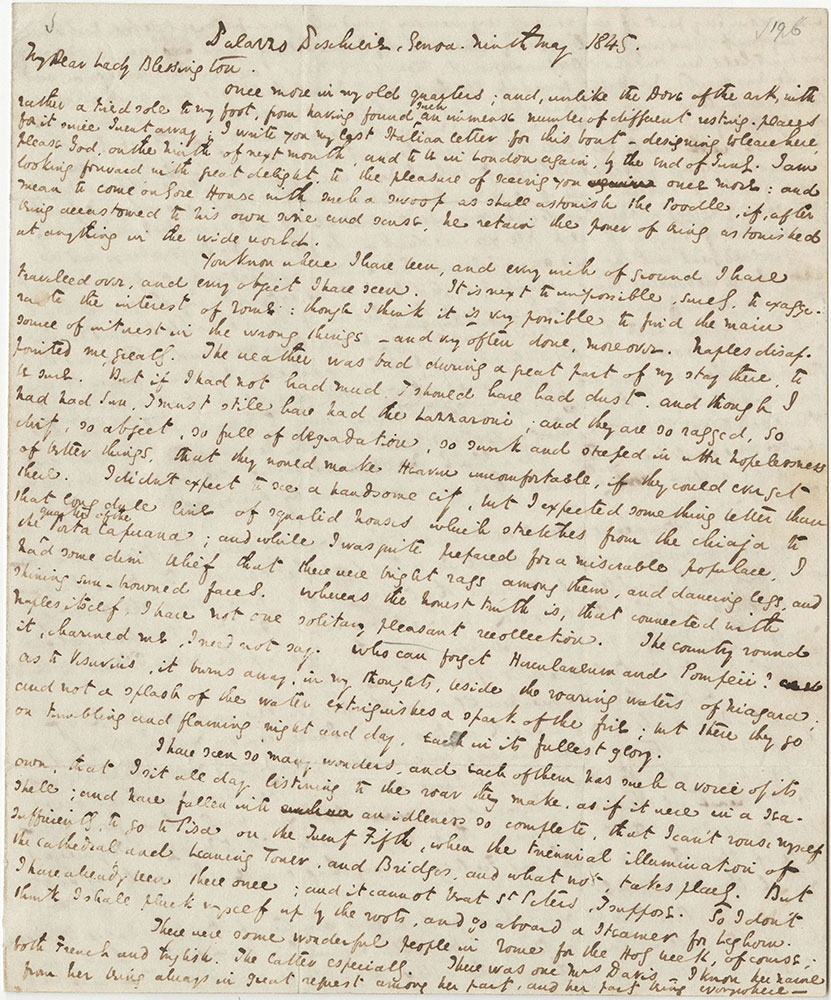 5 196
Palazzo Peschiere, Genoa. Ninth May 1845.
My Dear Lady Blessington.
Once more in my old quarters; and, unlike the Dove of the ark, with
rather a tired sole to my foot, from having found such an immense number of different resting-places
for it since I went away; I write you my last Italian letter for this bout – designing to leave here,
please God, on the Ninth of next month, and to be in London again, by the end of June. I am
looking forward with great delight to the pleasure of seeing you once more: and
mean to come on Gore House with such a swoop as shall astonish the Poodle, if, after
being accustomed to his own size and sense, he retain the power of being astonished
at anything in the wide world.
You know where I have been, and every inch of ground I have
travelled over, and every object I have seen. It is next to impossible, surely, to exagge-
rate the interest of Rome: though I think it is very possible to find the main
source of interest in the wrong things – and very often done, moreover. Naples disap-
pointed me, greatly. The weather was bad during a great part of my stay there, to
be sure. But if I had not had mud, I should have had dust. and though I
had had Sun, I must still have had the Lazzaroni; and they are so ragged, so
dirty, so abject, so full of degradation, so sunk and steeped in utter hopelessness
of better things, that they would make Heaven uncomfortable, if they could ever get
there. I didn't expect to see a handsome city, but I expected something better than
that long dull line of squalid houses which stretches from the Chiaja to
the quarter of the Porta Capuana; and while I was quite prepared for a miserable populace, I
had some dim belief that there were bright rags among them, and dancing legs, and
shining sun-browned faces. Whereas the honest truth is, that connected with
Naples itself, I have not one solitary pleasant recollection. The country round
it, charmed me, I need not say. Who can forget Herculaneum and Pompeii?
as to Vesuvius, it burns away, in my thoughts, beside the roaring waters of Niagara;
and not a splash of the water extinguishes a spark of the fire; but there they go
on tumbling and flaming night and day, each in its fullest glory.
I have seen so many wonders, and each of them has such a voice of its
own, that I sit all day listening to the roar they make, as if it were in a sea-
shell; and have fallen into an idleness so complete, that I can't rouse myself
sufficiently to go to Pisa on the Twenty Fifth, when the triennial illumination of
the Cathedral and Leaning Tower, and Bridges, and what not, takes place. But
I have already been there once; and it cannot beat St Peters, I suppose. So I don't
think I shall pluck myself up by the roots, and go aboard a Steamer for Leghorn.
There were some wonderful people in Rome for the Holy week, of course;
both French and English. The latter especially. There was one Mrs Davis – I know her name
from her being always in great request among her party, and her party being everywhere –